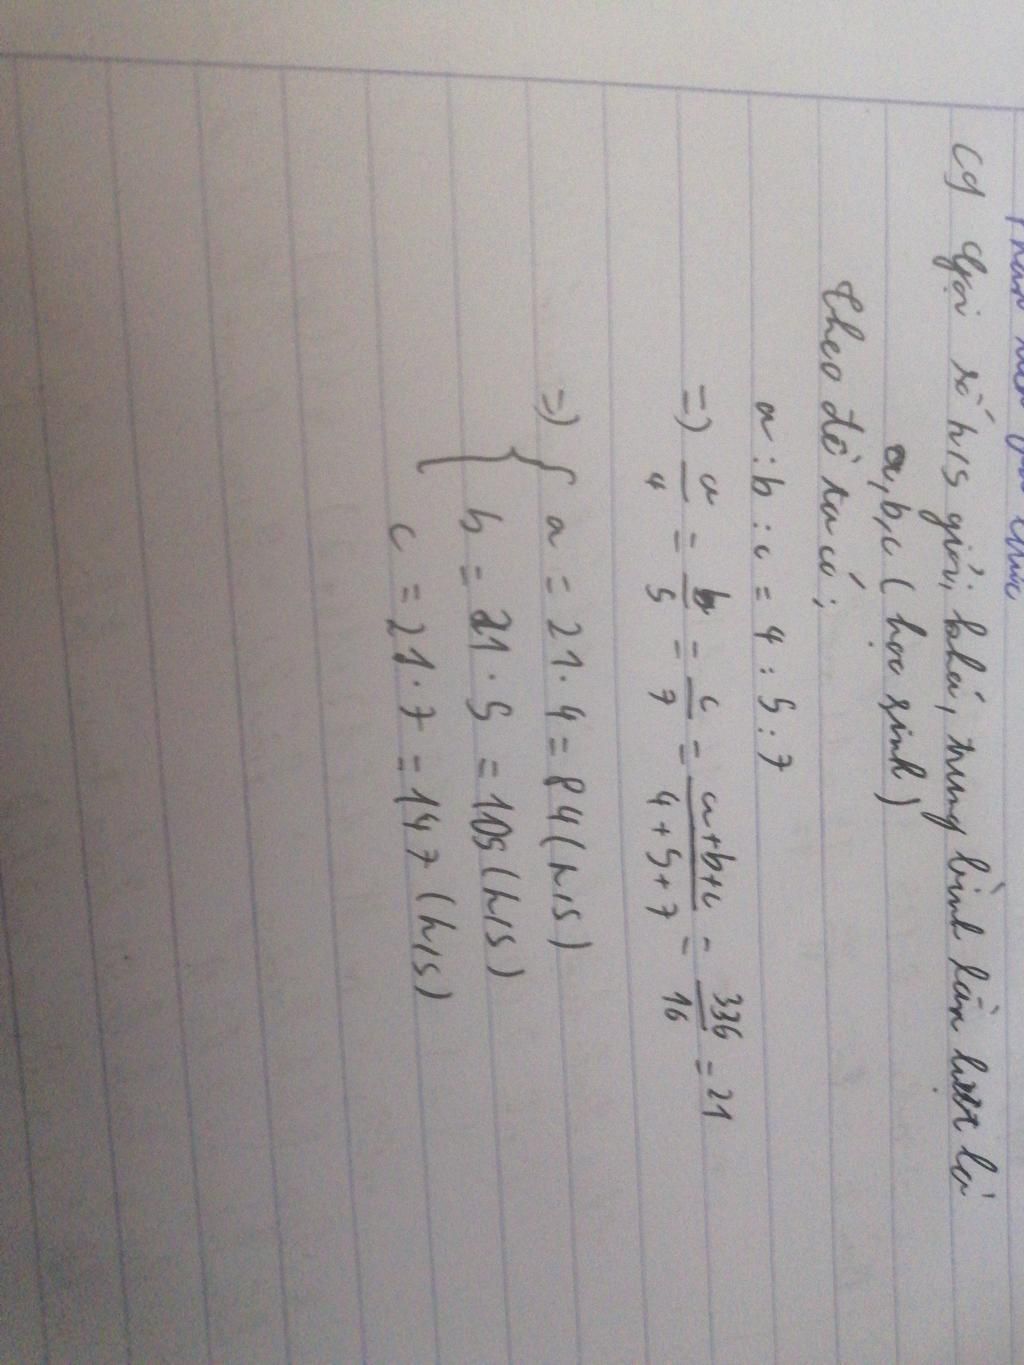 C9 Gọi số h/s giỏi, khá, trung bình lần lượt là
a, b, c (học sinh)
Theo đề ra có:
a : b : c = 4 : 5 : 7
=> a/4 = b/5 = c/7 = a+b+c/4+5+7 = 336/16 = 21
=> { a = 21 . 4 = 84 (h/s)
b = 21 . 5 = 105 (h/s)
c = 21 . 7 = 147 (h/s)